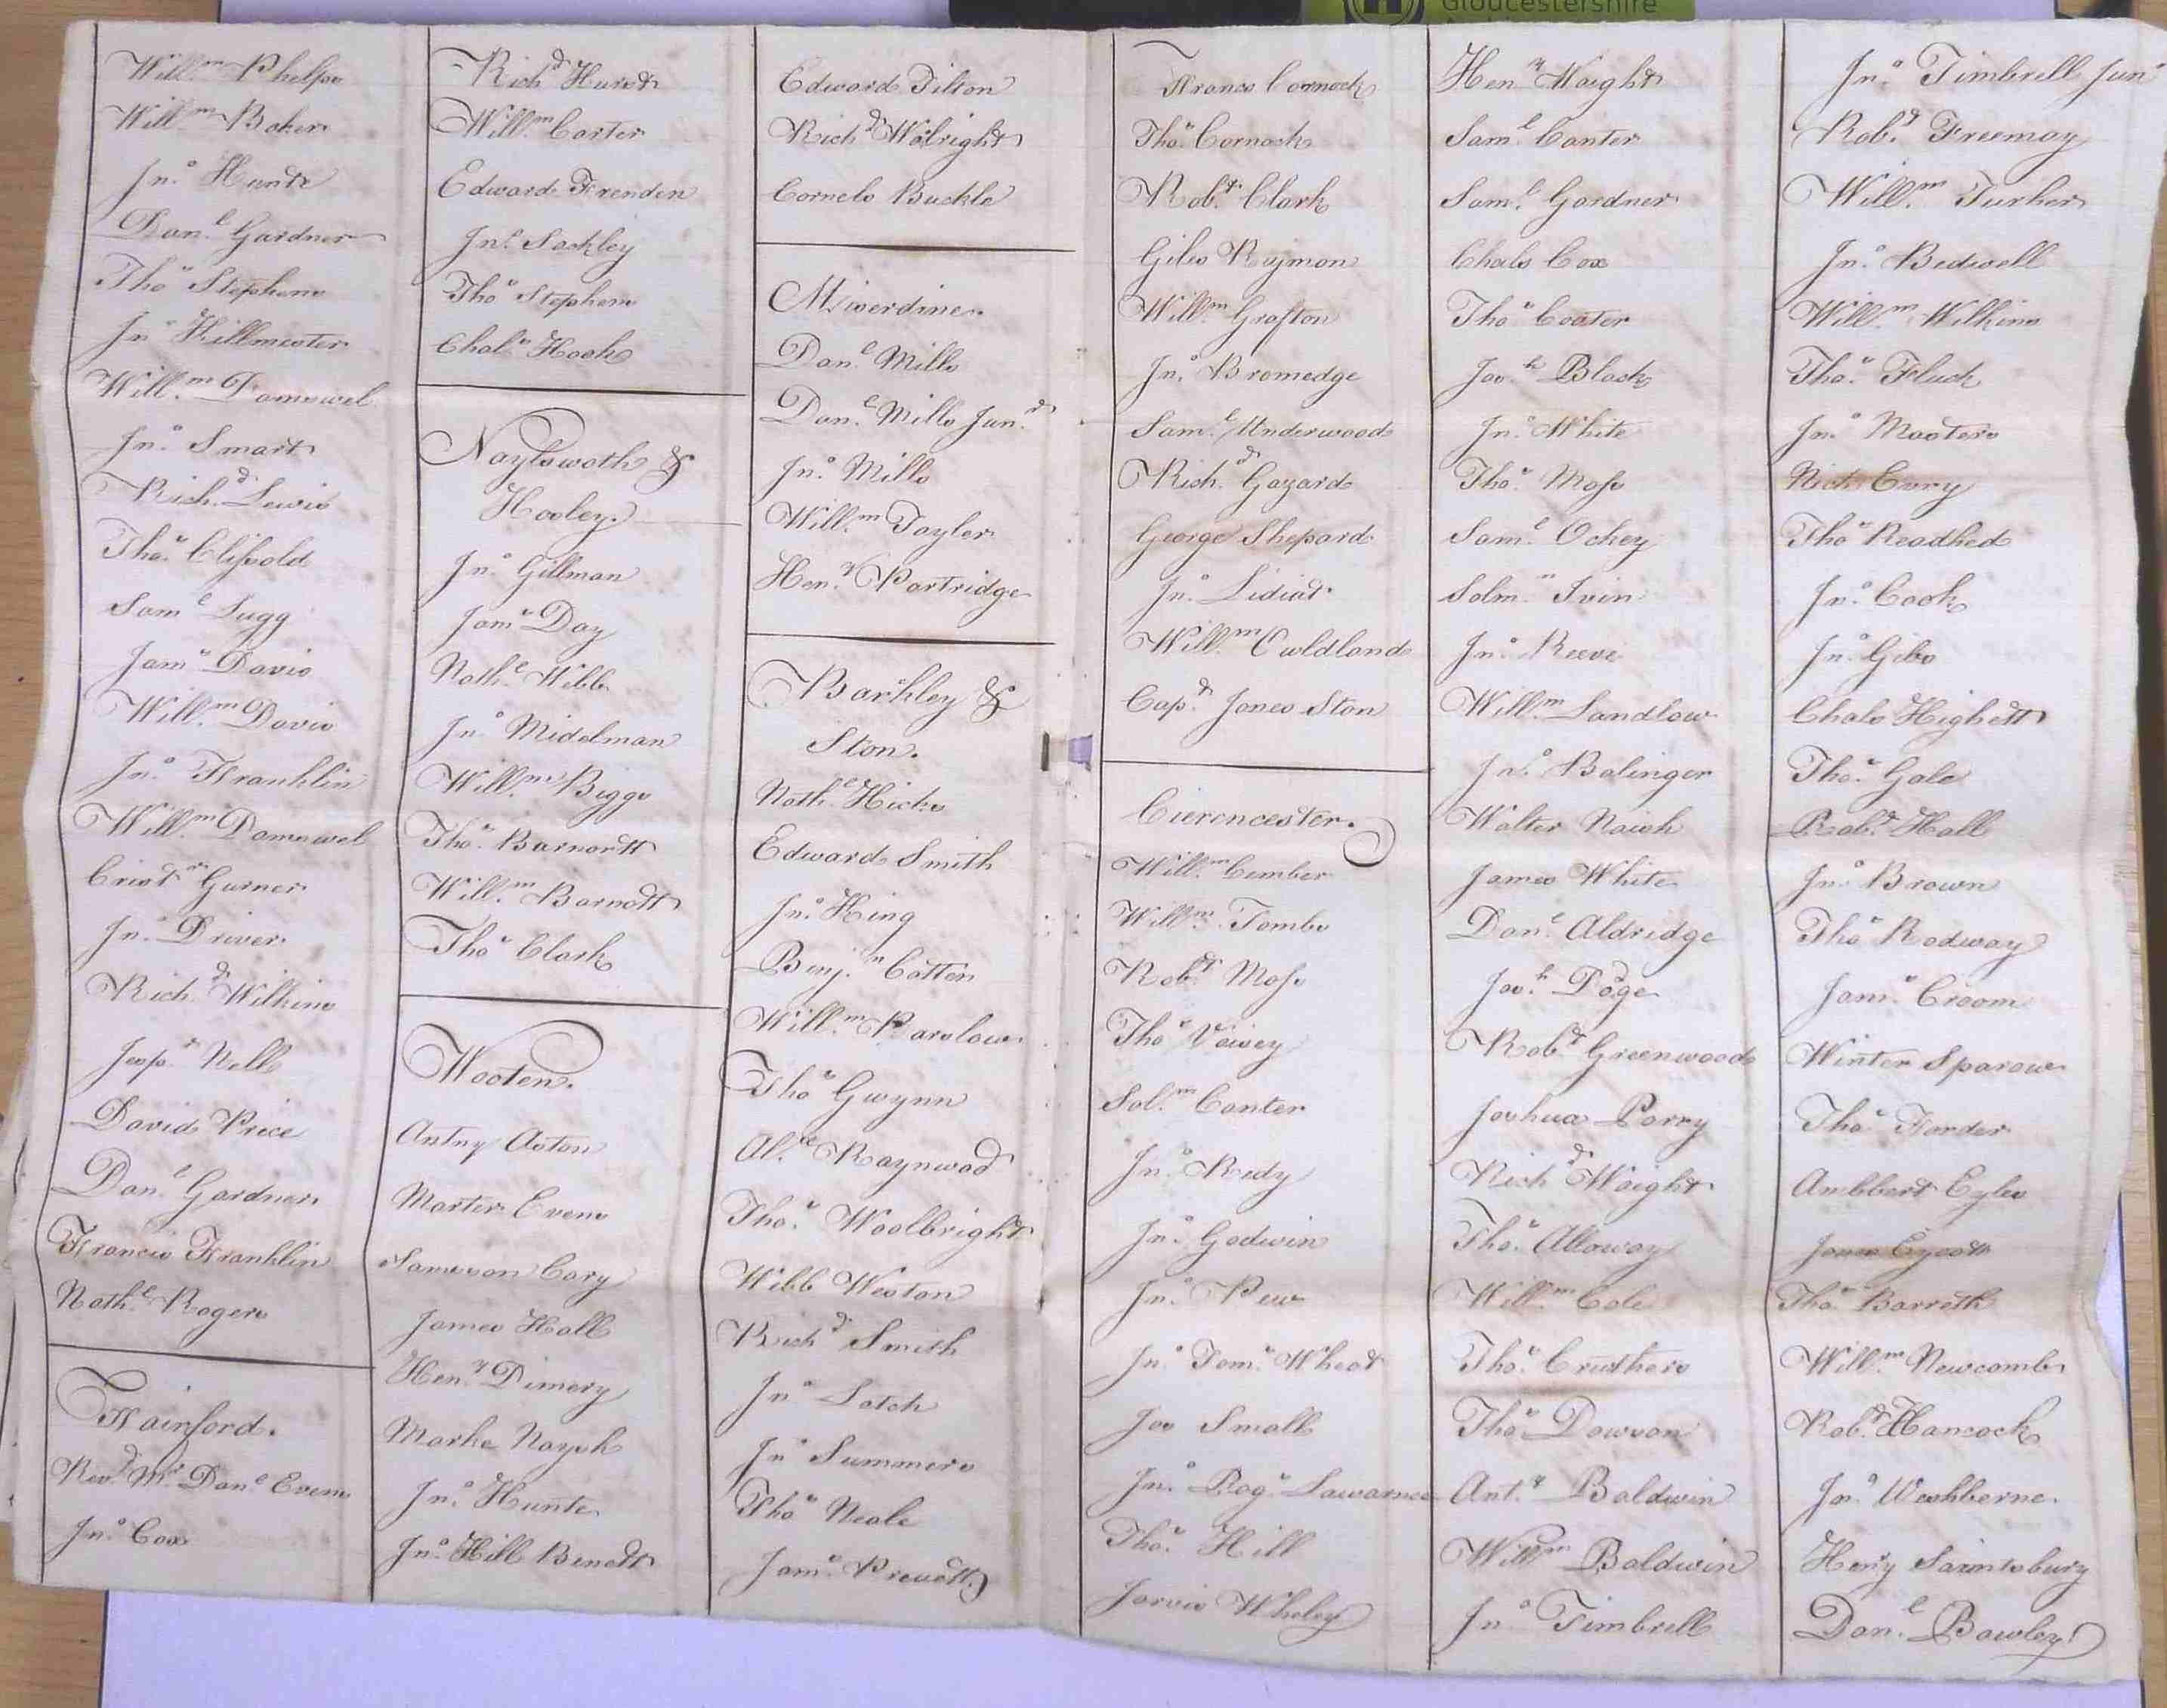 Gloucestershire
Will.m Phelps
Will.m Baker
Jn.o Hunte
Dan.l Gardner
Tho.s Stephens
Jn.o Hillmester
Will.m Damswel
Jn.o Smart
Rich.d Lewis
Tho.s Clissold
Sam.l Lugg
Jam.s Davis
Will.m Davis
Jn.o Franklin
Will.m Damswel
Crist.r Gurner
Jn.o Driver
Rich.d Wilkins
Jesp.r Nell
David Price
Dan.l Gardner
Francis Franklin
Nath.l Rogers
Fairford.
Rev.d Mr Dan.l Evens
Jn.o Cox
Rich.d Hurdt
Will.m Carter
Edward Frenden
Jn.o Sackley
Tho.s Stephens
Chal.s Hook
Naylsworth &
Hosley.
Jn.o Gillman
Jam.s Day
Nath.l Wibb
Jn.o Midelman
Will.m Biggs
Tho.s Barnardt
Will.m Barnett
Tho.s Clark
Wooten.
Antny Aston
Marter Evens
Sameson Cary
James Hall
Hen.y Dimery
Marke Naysh
Jn.o Hunte
Jn.o Hill Benett
Edward Tilton
Rich.d Walright
Cornels Buckle
Miserdine.
Dan.l Mills
Dan.l Mills Jun.r
Jn.o Mills
Will.m Tayler
Hen.y Partridge
Barkley &
Ston.
Nath.l Hicks
Edward Smith
Jn.o King
Binj.n Cotten
Will.m Parslow
Tho.s Gwynn
Al.e Raynwad
Tho.s Woolbright
Wibb Weston
Rich.d Smith
Jn.o Latch
Jn.o Summers
Tho.s Neale
Jam.s Prewett
Frances Cornock
Tho.s Cornock
Rob.t Clark
Giles Raymon
Will.m Grafton
Jn.o Bromedge
Sam.l Underwood
Rich.d Gazard
George Shepard
Jn.o Lidiat
Will.m Owldland
Cap.t Jones Ston
Cierencester.
Will.m Cember
Will.m Tombs
Rob.t Moss
Tho.s Vaisey
Sol.m Canter
Jn.o Redy
Jn.o Godwin
Jn.o Pew
Jn.o Tom.s Wheat
Jos Small
Jn.o Rog.s Lawarnce
Tho.s Hill
Jarvis Wheley
Hen.y Waight
Sam.l Canter
Sam.l Gardner
Chals Cox
Tho.s Coster
Jos.h Black
Jn.o White
Tho.s Moss
Sam.l Ockey
Solm.n Ivin
Jn.o Reeve
Will.m Landlow
Jn.o Balinger
Walter Naish
James White
Dan.l Aldridge
Jos.h Page
Rob.t Greenwood
Joshua Parry
Rich.d Waight
Tho.s Alloway
Will.m Cole
Tho.s Cruthers
Tho.s Dowson
Ant.y Baldwin
Will.m Baldwin
Jn.o Timbrell
Jn.o Timbrell Jun.r
Rob.t Freemay
Will.m Turker
Jn.o Bedwell
Will.m Wilkins
Tho.s Fluck
Jn.o Masters
Rich Cury
Tho.s Readhed
Jn.o Cook
Jn.o Gibs
Chals Highett
Tho.s Gale
Rob.t Hall
Jn.o Brown
Tho.s Radway
Jam.s Croom
Winter Sparow
Tho.s Farder
Ambbert Eyles
James Eycott
Tho.s Barreth
Will.m Newcomb
Rob.t Hancock
Jn.o Weshberne
Henry Saintsbury
Dan.l Bawley